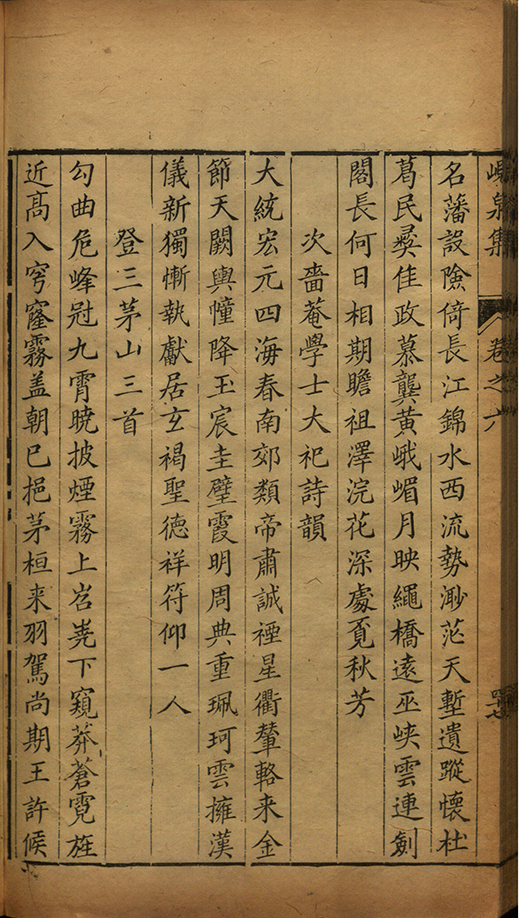 峴泉集 卷之六
名藩設險倚長江錦水西流勢渺茫天塹遺蹤懷杜
葛民彞佳政慕龔黃峨嵋月映繩橋遠巫峽雲連劍
閣長何日相期瞻祖澤浣花深處覔秋芳
次嗇菴學士大祀詩韻
大統宏元四海春南郊類帝肅誠禋星衢輦輅来金
節天闕輿幢降玉宸圭璧霞明周典重珮珂雲擁漢
儀新獨慚執獻居玄褐聖徳祥符仰一人
登三茅山三首
勾曲危峰冠九霄曉披煙霧上岧嶤下窺莽蒼霓旌
近髙入穹窿霧盖朝已挹茅桓来羽駕尚期王許候